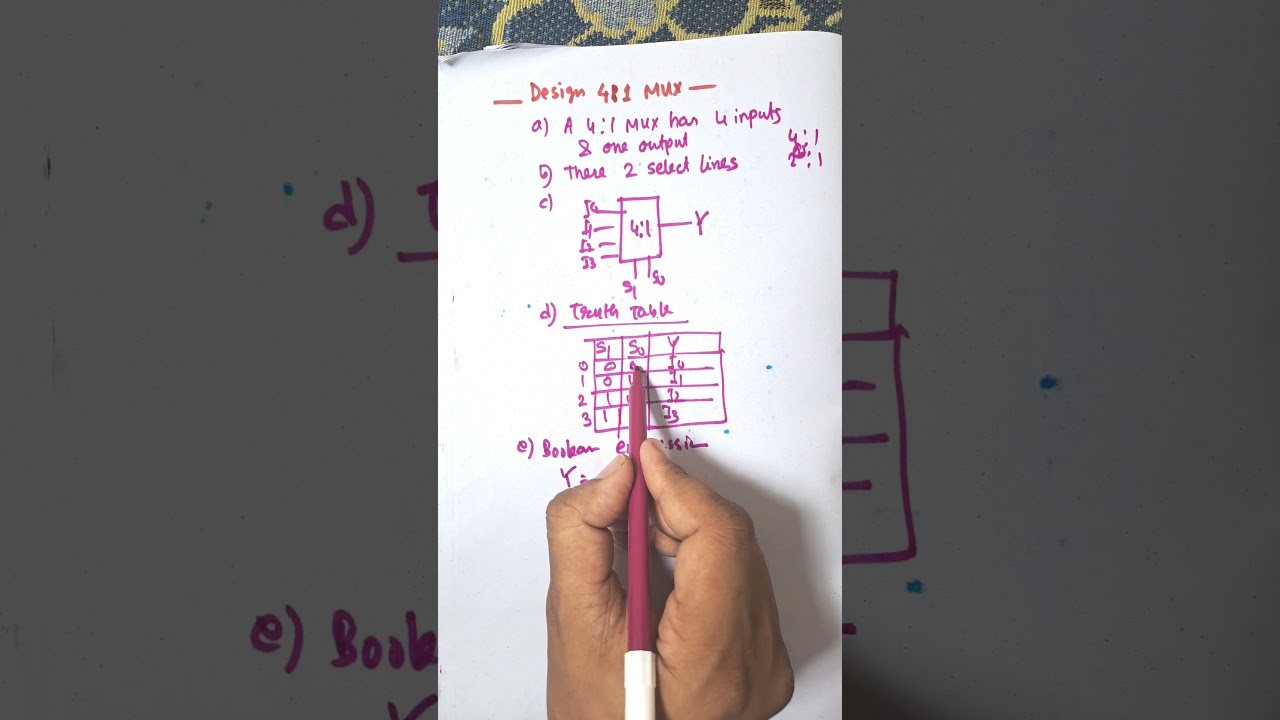 Design 4:1 MUX
a) A 4:1 MUX has 4 inputs
& one output
4:1
2 :1
b) There 2 select lines
c)
I0
I1
I2
I3
4:1
Y
S1 S0
d) Truth Table
S1 S0 Y
0 0 0 I0
1 0 1 I1
2 1 I2
3 1 I3
e) Boolean
Y =